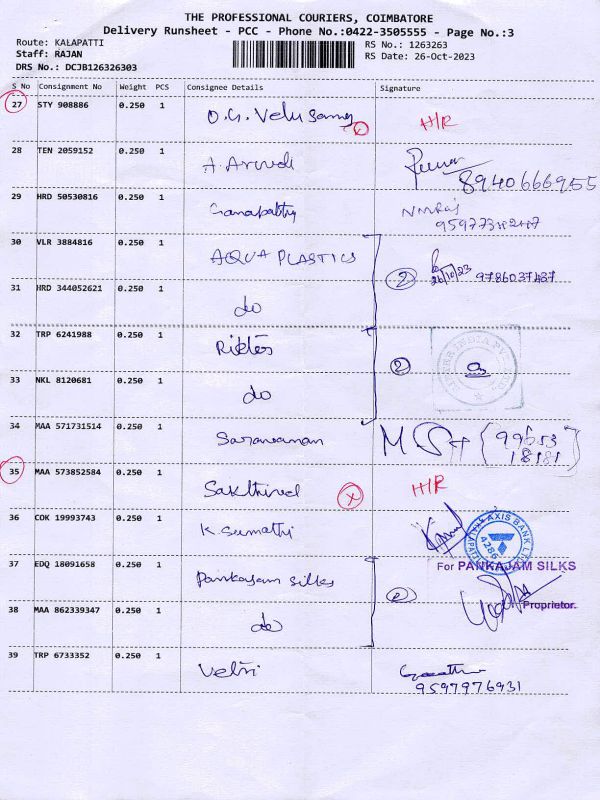 THE PROFESSIONAL COURIERS, COIMBATORE
Delivery Runsheet - PCC - Phone No.:0422-3505555 - Page No.:3
Route: KALAPATTI
Staff: RAJAN
DRS No.: DCJB126326303
RS No.: 1263263
RS Date: 26-Oct-2023
S No Consignment No Weight PCS Consignee Details Signature
27 STY 908886 0.250 1 O.G. Velusamy x H/R
28 TEN 2059152 0.250 1 8940666955
29 HRD 50530816 0.250 1 Ganapathy
30 VLR 3884816 0.250 1 AQUA PLASTICS 2 26/10/23 9786037437
31 HRD 344052621 0.250 1 do
32 TRP 6241988 0.250 1 2
33 NKL 8120681 0.250 1 do
34 MAA 571731514 0.250 1 Saravanan 99653
18181
35 MAA 573852584 0.250 1 Sakthivel x H/R
36 COK 19993743 0.250 1 K. Sumathi AXIS BANK LTD 4286
37 EDQ 18091658 0.250 1 Pankajam Silks 2 For PANKAJAM SILKS
38 MAA 862339347 0.250 1 do Proprietor.
39 TRP 6733352 0.250 1 Vetri
9597976931